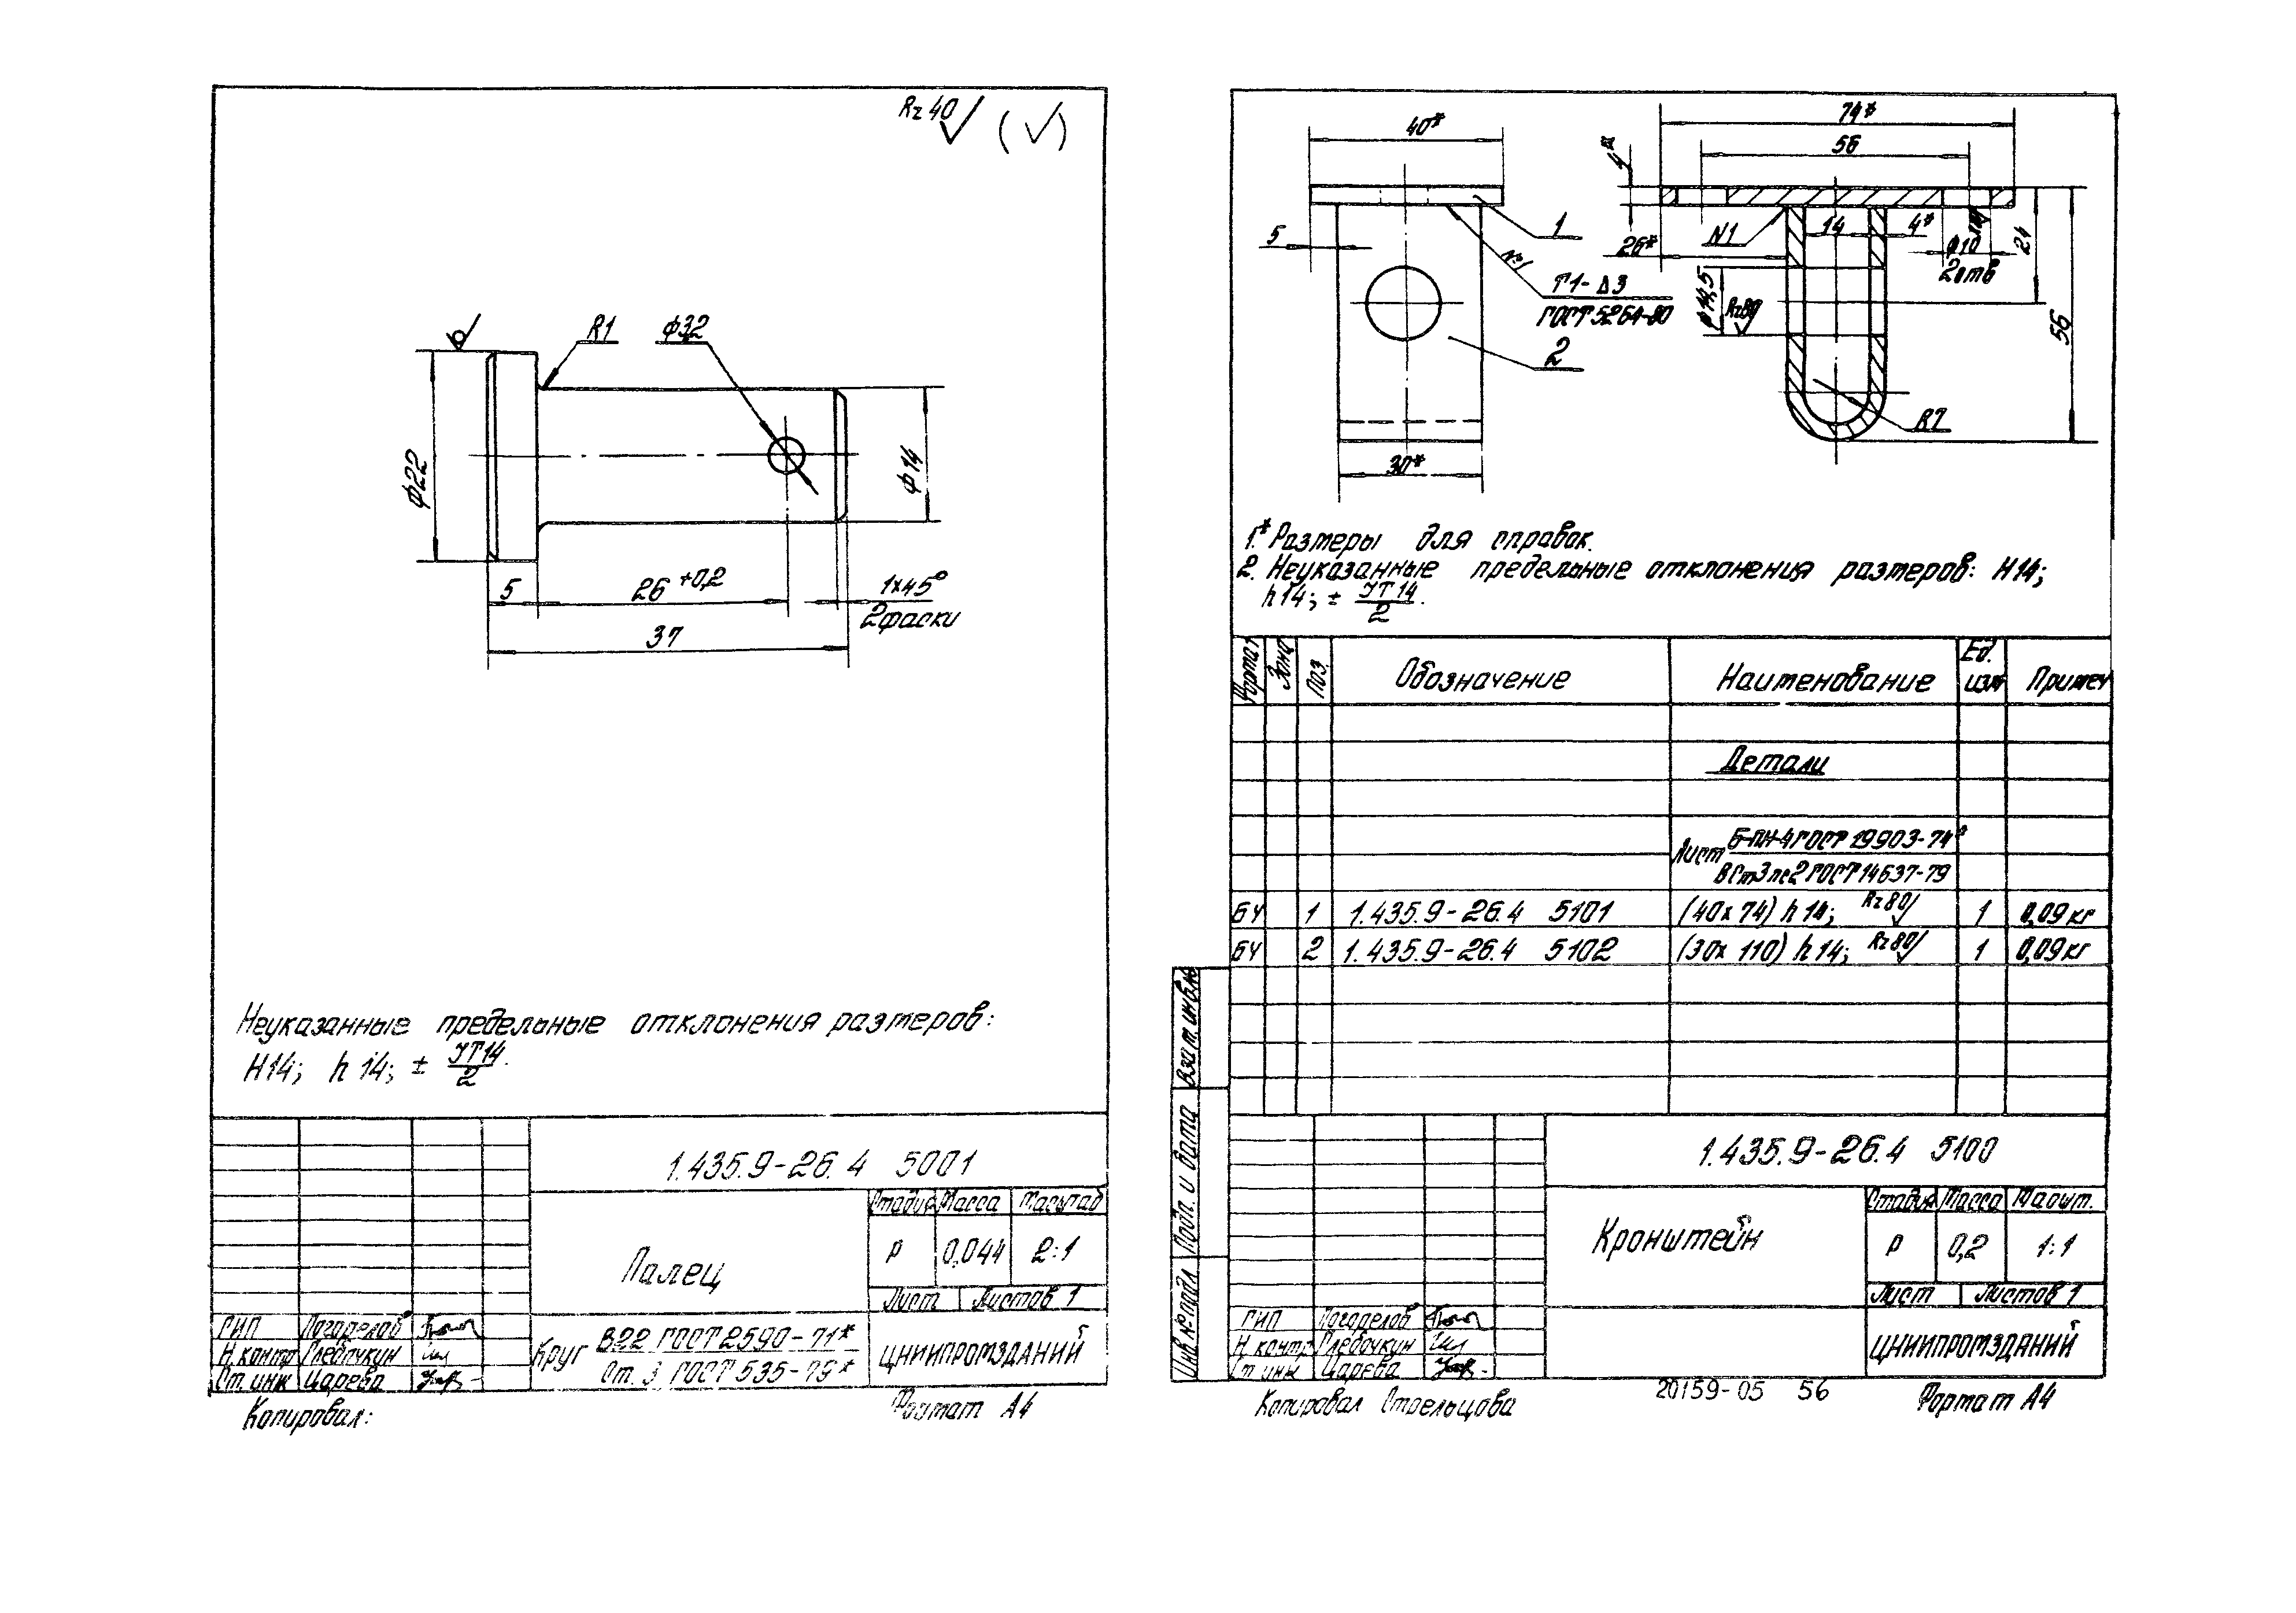 Rz 40 (√)
R1
ф3,2
ф22
ф14
5
26 +0,2
1×45°
2 фаски
37
Неуказанные предельные отклонения размеров:
H14; h 14; ± JT14/2.
1.435.9-26.4 5001
Палец
Стадия Масса Масштаб
Р 0,044 2:1
Лист Листов 1
ГИП Погорелов
Н.контр Глебочкин
Ст. инж Царева
Круг В22 ГОСТ 2590-71*
Ст. 3 ГОСТ 535-79*
ЦНИИПРОМЗДАНИЙ
Копировал:
Формат А4
40*
5
1
№1
Т1-Δ3
ГОСТ 5264-80
2
30*
74*
56
4*
26*
N1
14
4*
ф10
2отв
24
ф14,5
Rz80
56
R7
1.* Размеры для справок.
2. Неуказанные предельные отклонения размеров: H14;
h14; ± JT14/2.
Формат Зона Поз. Обозначение Наименование Ед. изм Примеч
Детали
Лист Б-ПН-4 ГОСТ 19903-74*
ВСт3пс2 ГОСТ 14637-79
БЧ 1 1.435.9-26.4 5101 (40х74) h 14; Rz80 1 0,09 кг
БЧ 2 1.435.9-26.4 5102 (30х 110) h 14; Rz80 1 0,09 кг
Взам. инв. №
Подп. и дата
Инв № подл
1.435.9-26.4 5100
Кронштейн
Стадия Масса Масшт.
Р 0,2 1:1
Лист Листов 1
ГИП Погорелов
Н. контр Глебочкин
Ст инж Царева
ЦНИИПРОМЗДАНИЙ
Копировал Стрельцова
20159-05 56
Формат А4